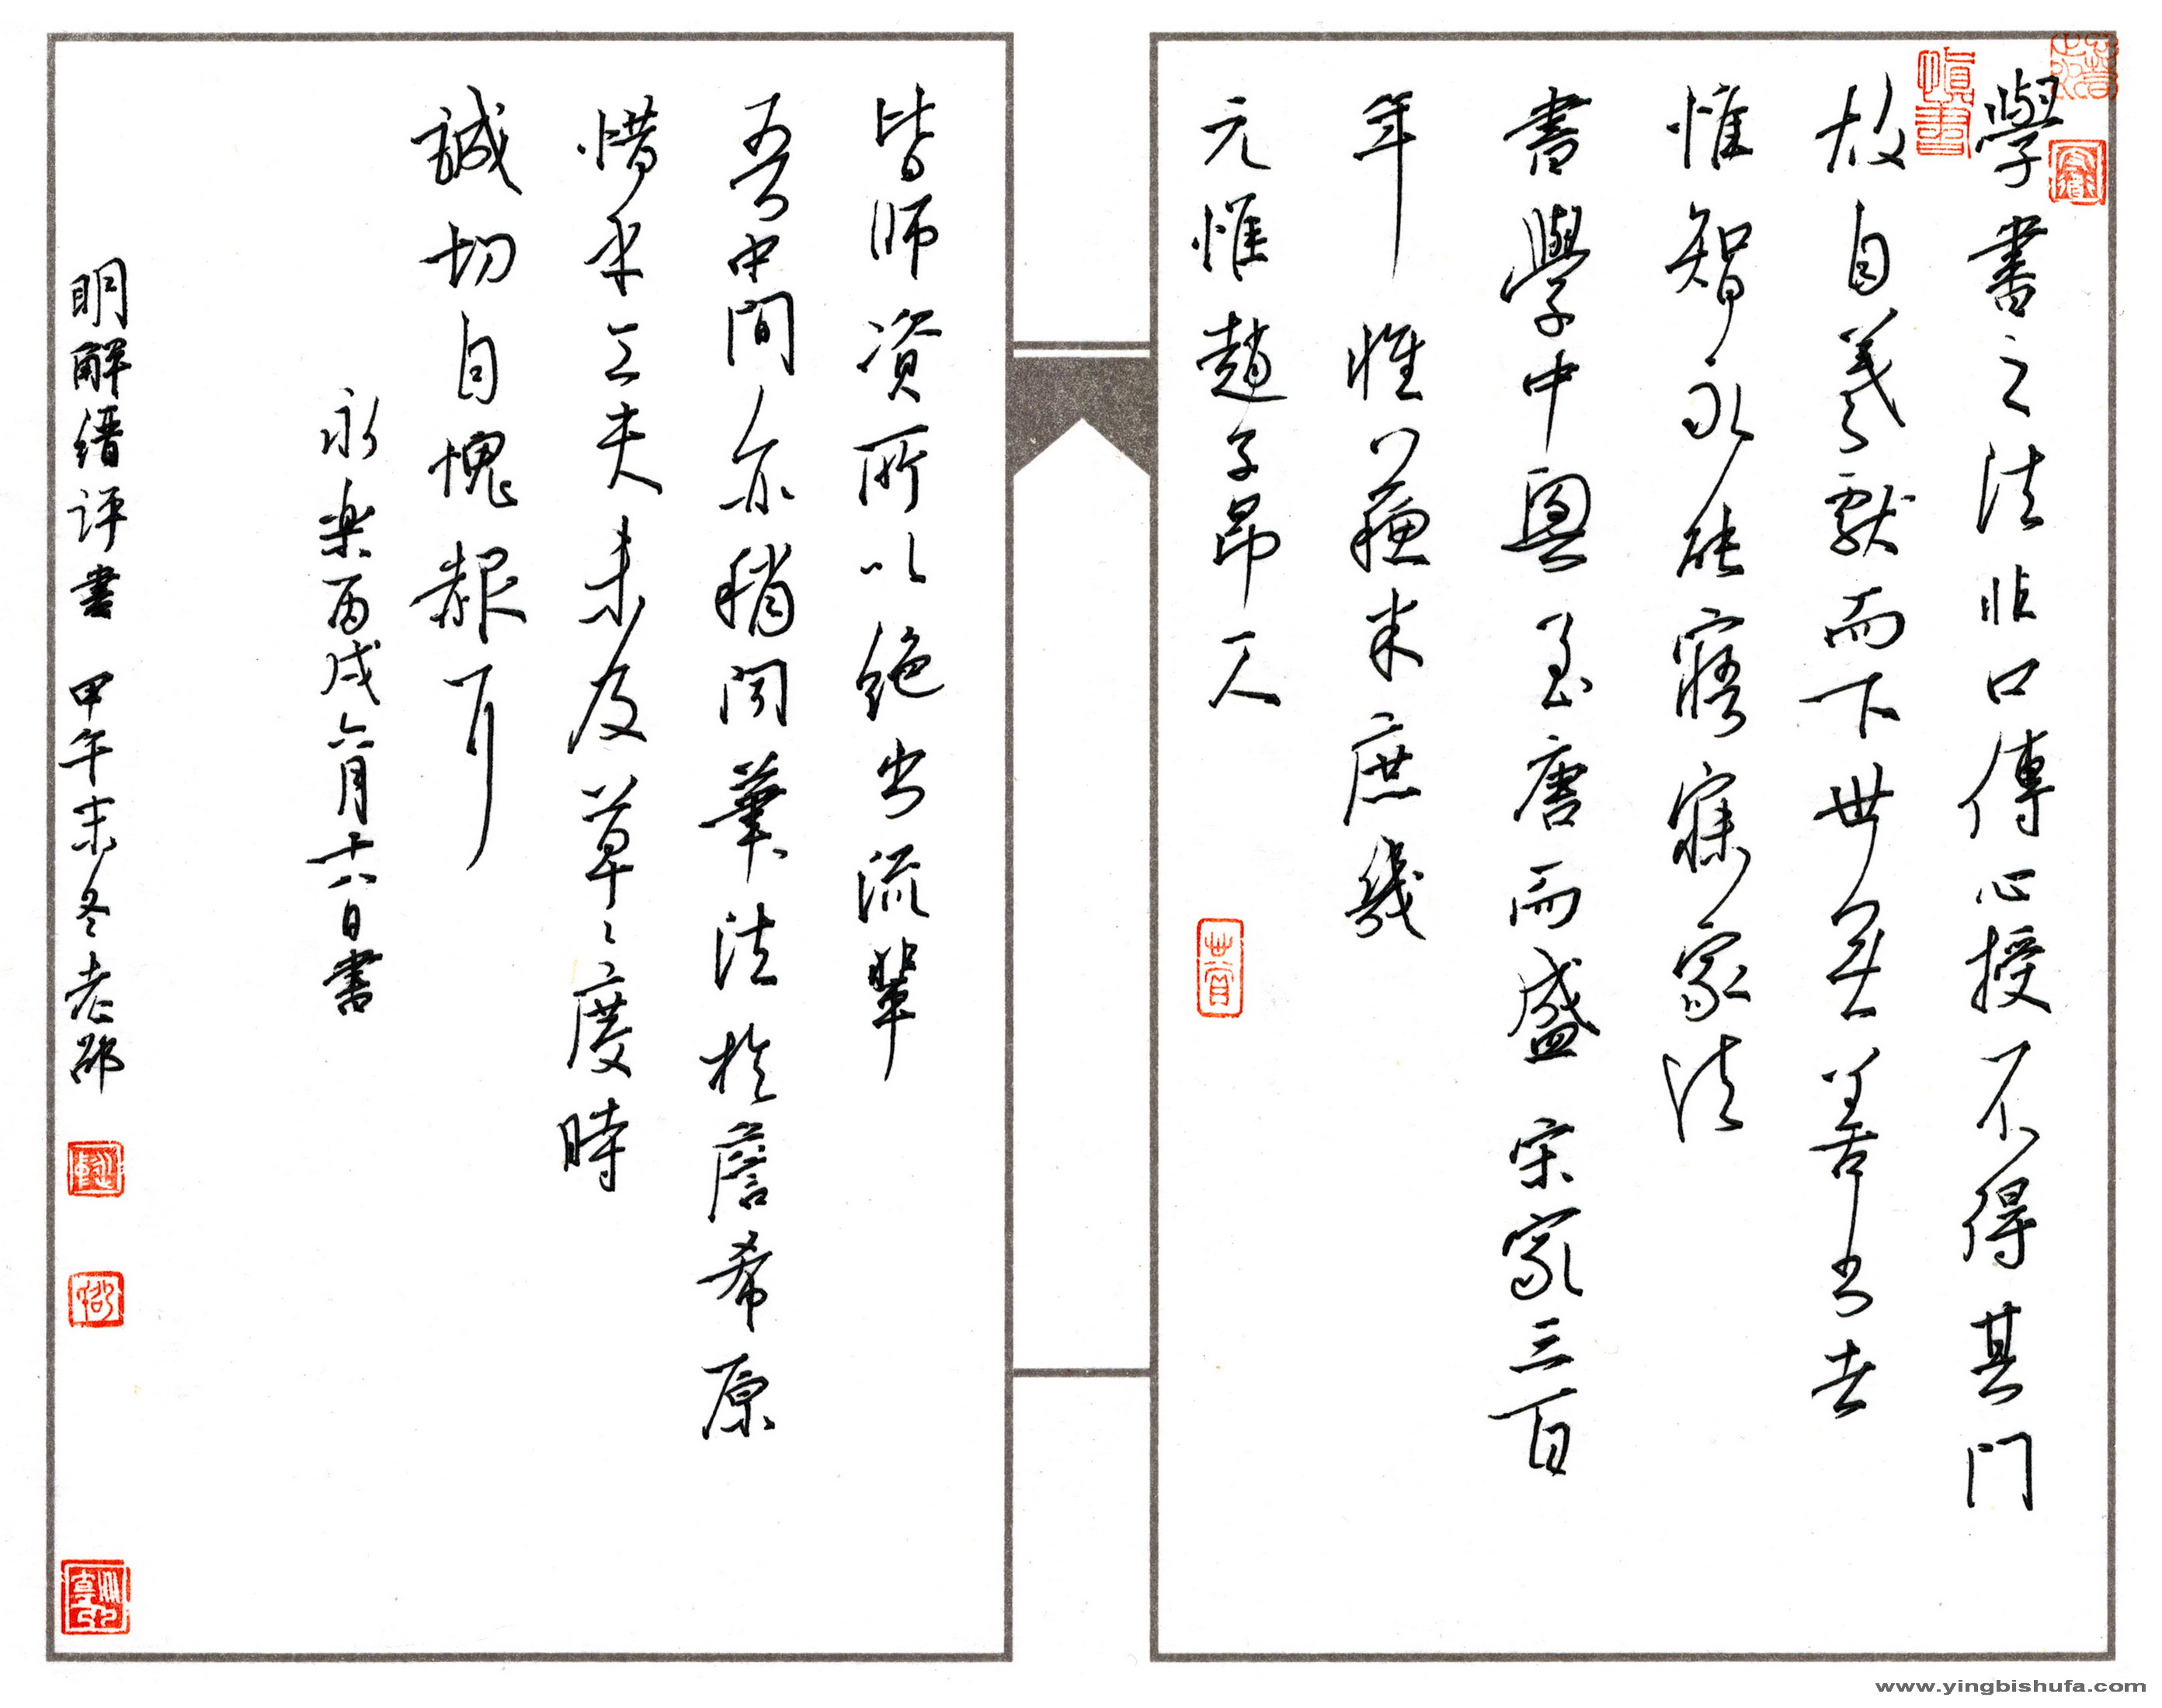 學書之法非口傳心授不得其門
故自羲獻而下世無善書者
惟智永能寤寐家法
書學中興至唐而盛宋家三百
年惟蘇米庶幾
元惟趙子昂一人
皆師資所以絕出流輩
吾中間亦稍聞筆法於詹希原
惜乎工夫未及草草度時
誠切自愧赧耳
永樂丙戌六月十八日書
明解縉評書 甲午末冬老邵
www.yingbishufa.com